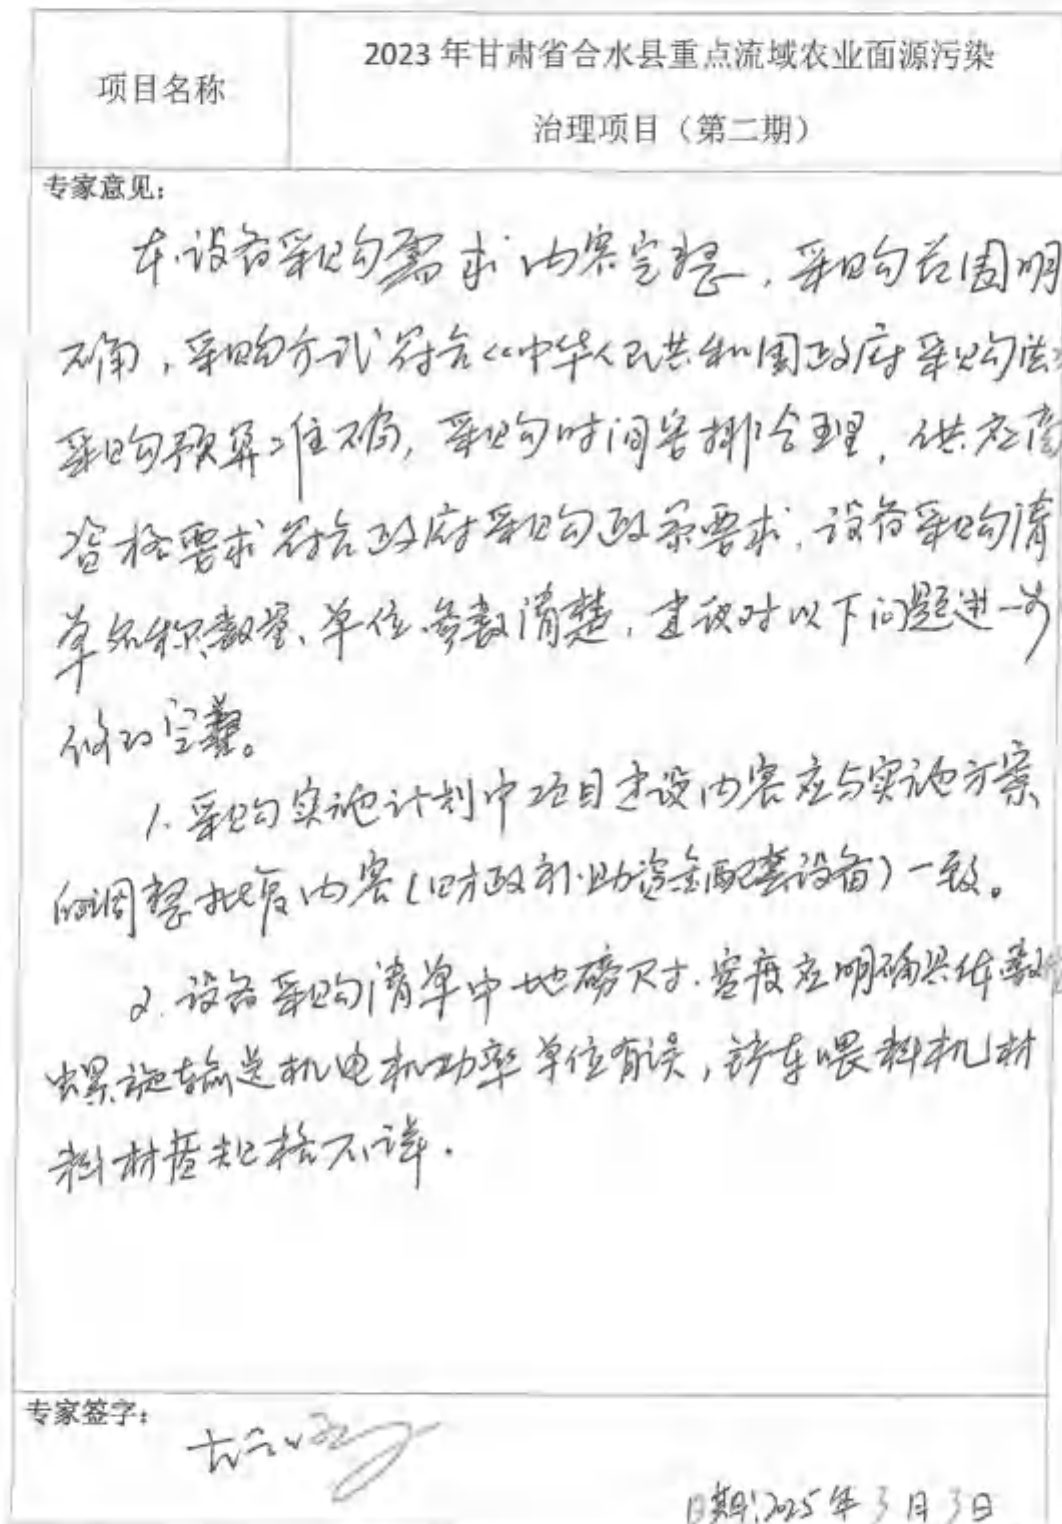 项目名称
2023年甘肃省合水县重点流域农业面源污染
治理项目（第二期）
专家意见：
本设备采购需求内容完整，采购范围明
确，采购方式符合《中华人民共和国政府采购法》
采购预算准确，采购时间安排合理，供应商
资格要求符合政府采购政策要求，设备采购清
单名称、数量、单位、参数清楚，建议对以下问题进一步
修改完善。
1. 采购实施计划中项目建设内容应与实施方案
的调整批复内容（财政补助资金配套设备）一致。
2. 设备采购清单中地磅尺寸、容度应明确具体数
螺旋输送机电机功率单位有误，铲车喂料机材
料材质规格不详．
专家签字：
日期：2025年3月3日